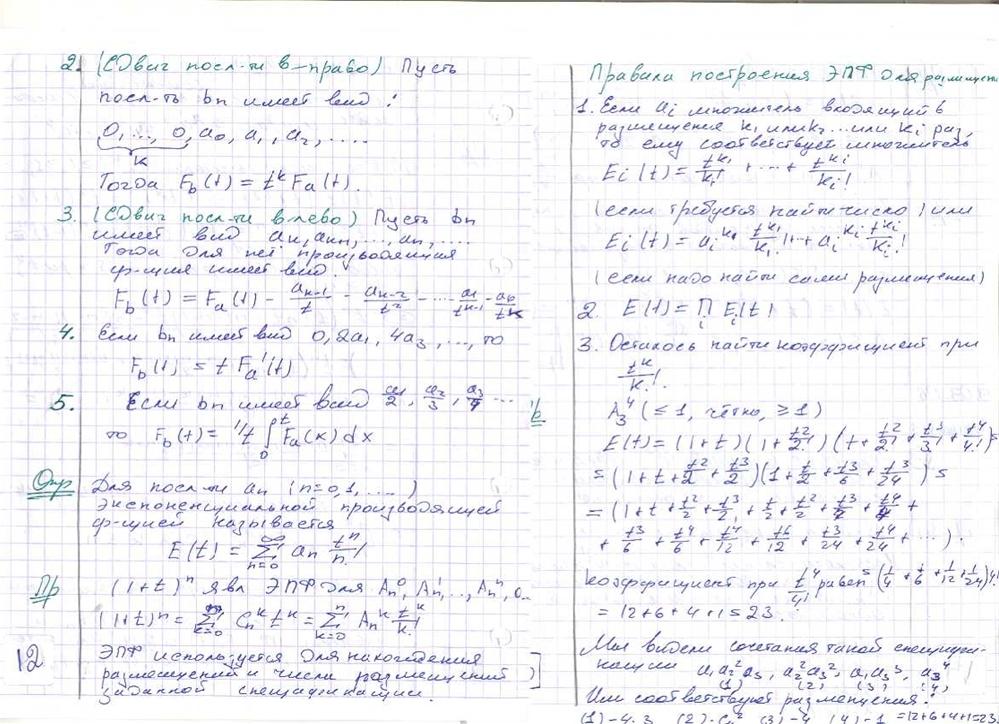 2. (Сдвиг посл-ти в-право) Пусть
посл-ть bn имеет вид:
0, ..., 0, a0, a1, a2, ....
k
Тогда Fb(t) = t^k Fa(t).
3. (Сдвиг посл-ти влево) Пусть bn
имеет вид ak, ak+1, ..., an, ....
Тогда для неё производящая
ф-ция имеет вид:
Fb(t) = Fa(t) - ak-1/t - ak-2/t^2 - ... - a1/t^k-1 - a0/t^k
4. Если bn имеет вид 0, 2a1, 4a3, ..., то
Fb(t) = t Fa'(t)
5. Если bn имеет вид a1/2, a2/3, a3/4, ...
то Fb(t) = 1/t ∫0^t Fa(x) dx
Опр Для посл-ти an (n=0,1,....)
экспоненциальной производящей
ф-цией называется
E(t) = Σ n=0 ∞ an t^n/n!
Пр (1+t)^n явл ЭПФ для An^0, An^1, ..., An^n, 0..
(1+t)^n = Σ k=0 n Cn^k t^k = Σ k=0 n An^k t^k/k!
12
ЭПФ используется для нахождения
размещений и числа размещений
заданной спецификации.
Правила построения ЭПФ для размещ
1. Если ai множитель входящий в
размещения k1 или k2 ... или ki раз,
то ему соответствует множитель
Ei(t) = t^k1/k1! + ... + t^ki/ki!
(если требуется найти число) или
Ei(t) = ai^k1 t^k1/k1! + .. + ai^ki t^ki/ki!
(если надо найти сами размещения)
2. E(t) = П i Ei(t)
3. Осталось найти коэффициент при
t^k/k!.
A3^4 (≤1, чётно, ≥1)
E(t) = (1+t)(1+t^2/2!)(t+t^2/2!+t^3/3!+t^4/4!) =
= (1+t+t^2/2+t^3/2)(1+t/2+t^3/6+t^3/24) =
= (1+t+t^2/2+t^3/2+t/2+t^2/2+t^3/4+t^4/4+
+t^3/6+t^4/6+t^4/12+t^6/12+t^3/24+t^4/24+...).
коэффициент при t^4/4! равен = (1/4+1/6+1/12+1/24)4!
= 12+6+4+1=23.
Мы видели сочетания такой специфи-
кации a1a2^2a3, a2^2a3^2, a1a3^3, a3^4
(1) (2) (3) (4)
Им соответствуют размещения:
(1)-4·3 (2)-C4^2 (3)-4 (4)-1 =12+6+4+1=23